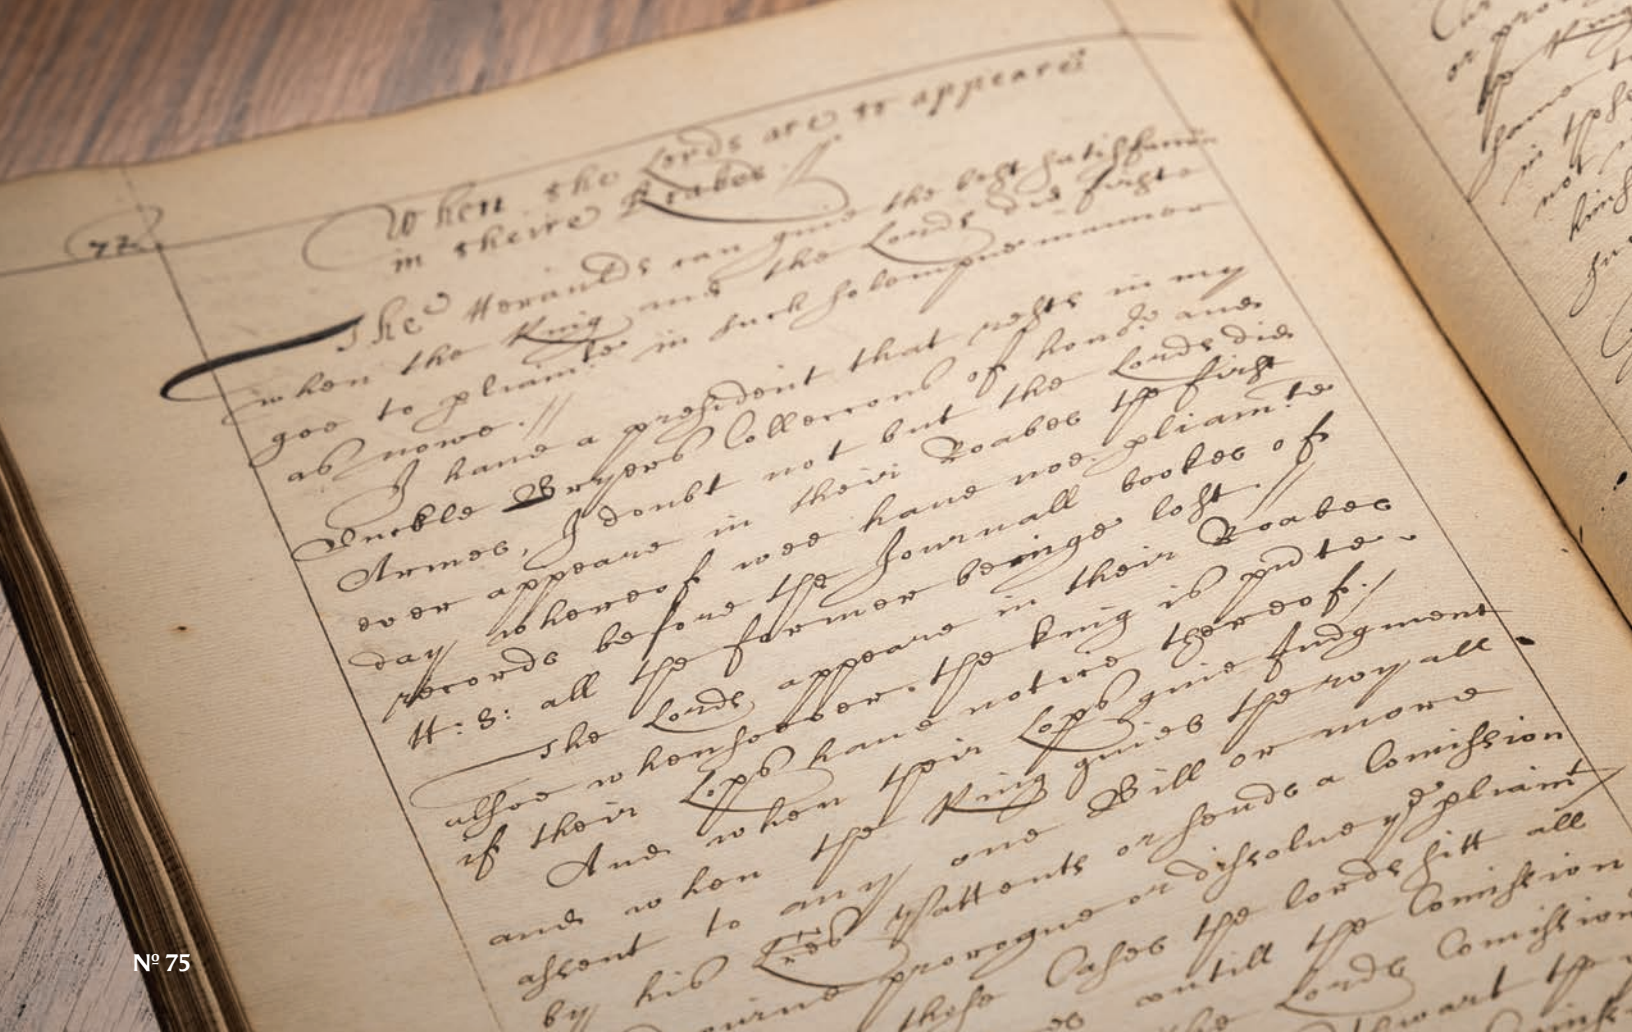 77
When the Lords are to appeare
in theire Roabes.
The Heraulds can giue the best satisfaccion
when the King and the Lords did firste
goe to pliamte in such solempne manner
as nowe.//
I haue a president that rests in my
Vnckle Bryers Colleccons of hande and
Armes, I doubt not but the Lords did
ever appeare in their Roabes the first
day whereof wee haue noe pliamte
records before the Journall bookes of
H: 8: all the former beinge lost.//
The Lords appeare in their Roabes
alsoe whensoever the King is pnte
if their Lopps haue notice thereof./
And when their Lopps giue Judgment
and when the King giues the roy all
assent to any one Bill or more
by his Lres Pattents or sends a Comission
prorogue or dissolue ye pliamt
these Cases the lords sitt all
untill the Comission
the Lords Comission
No 75